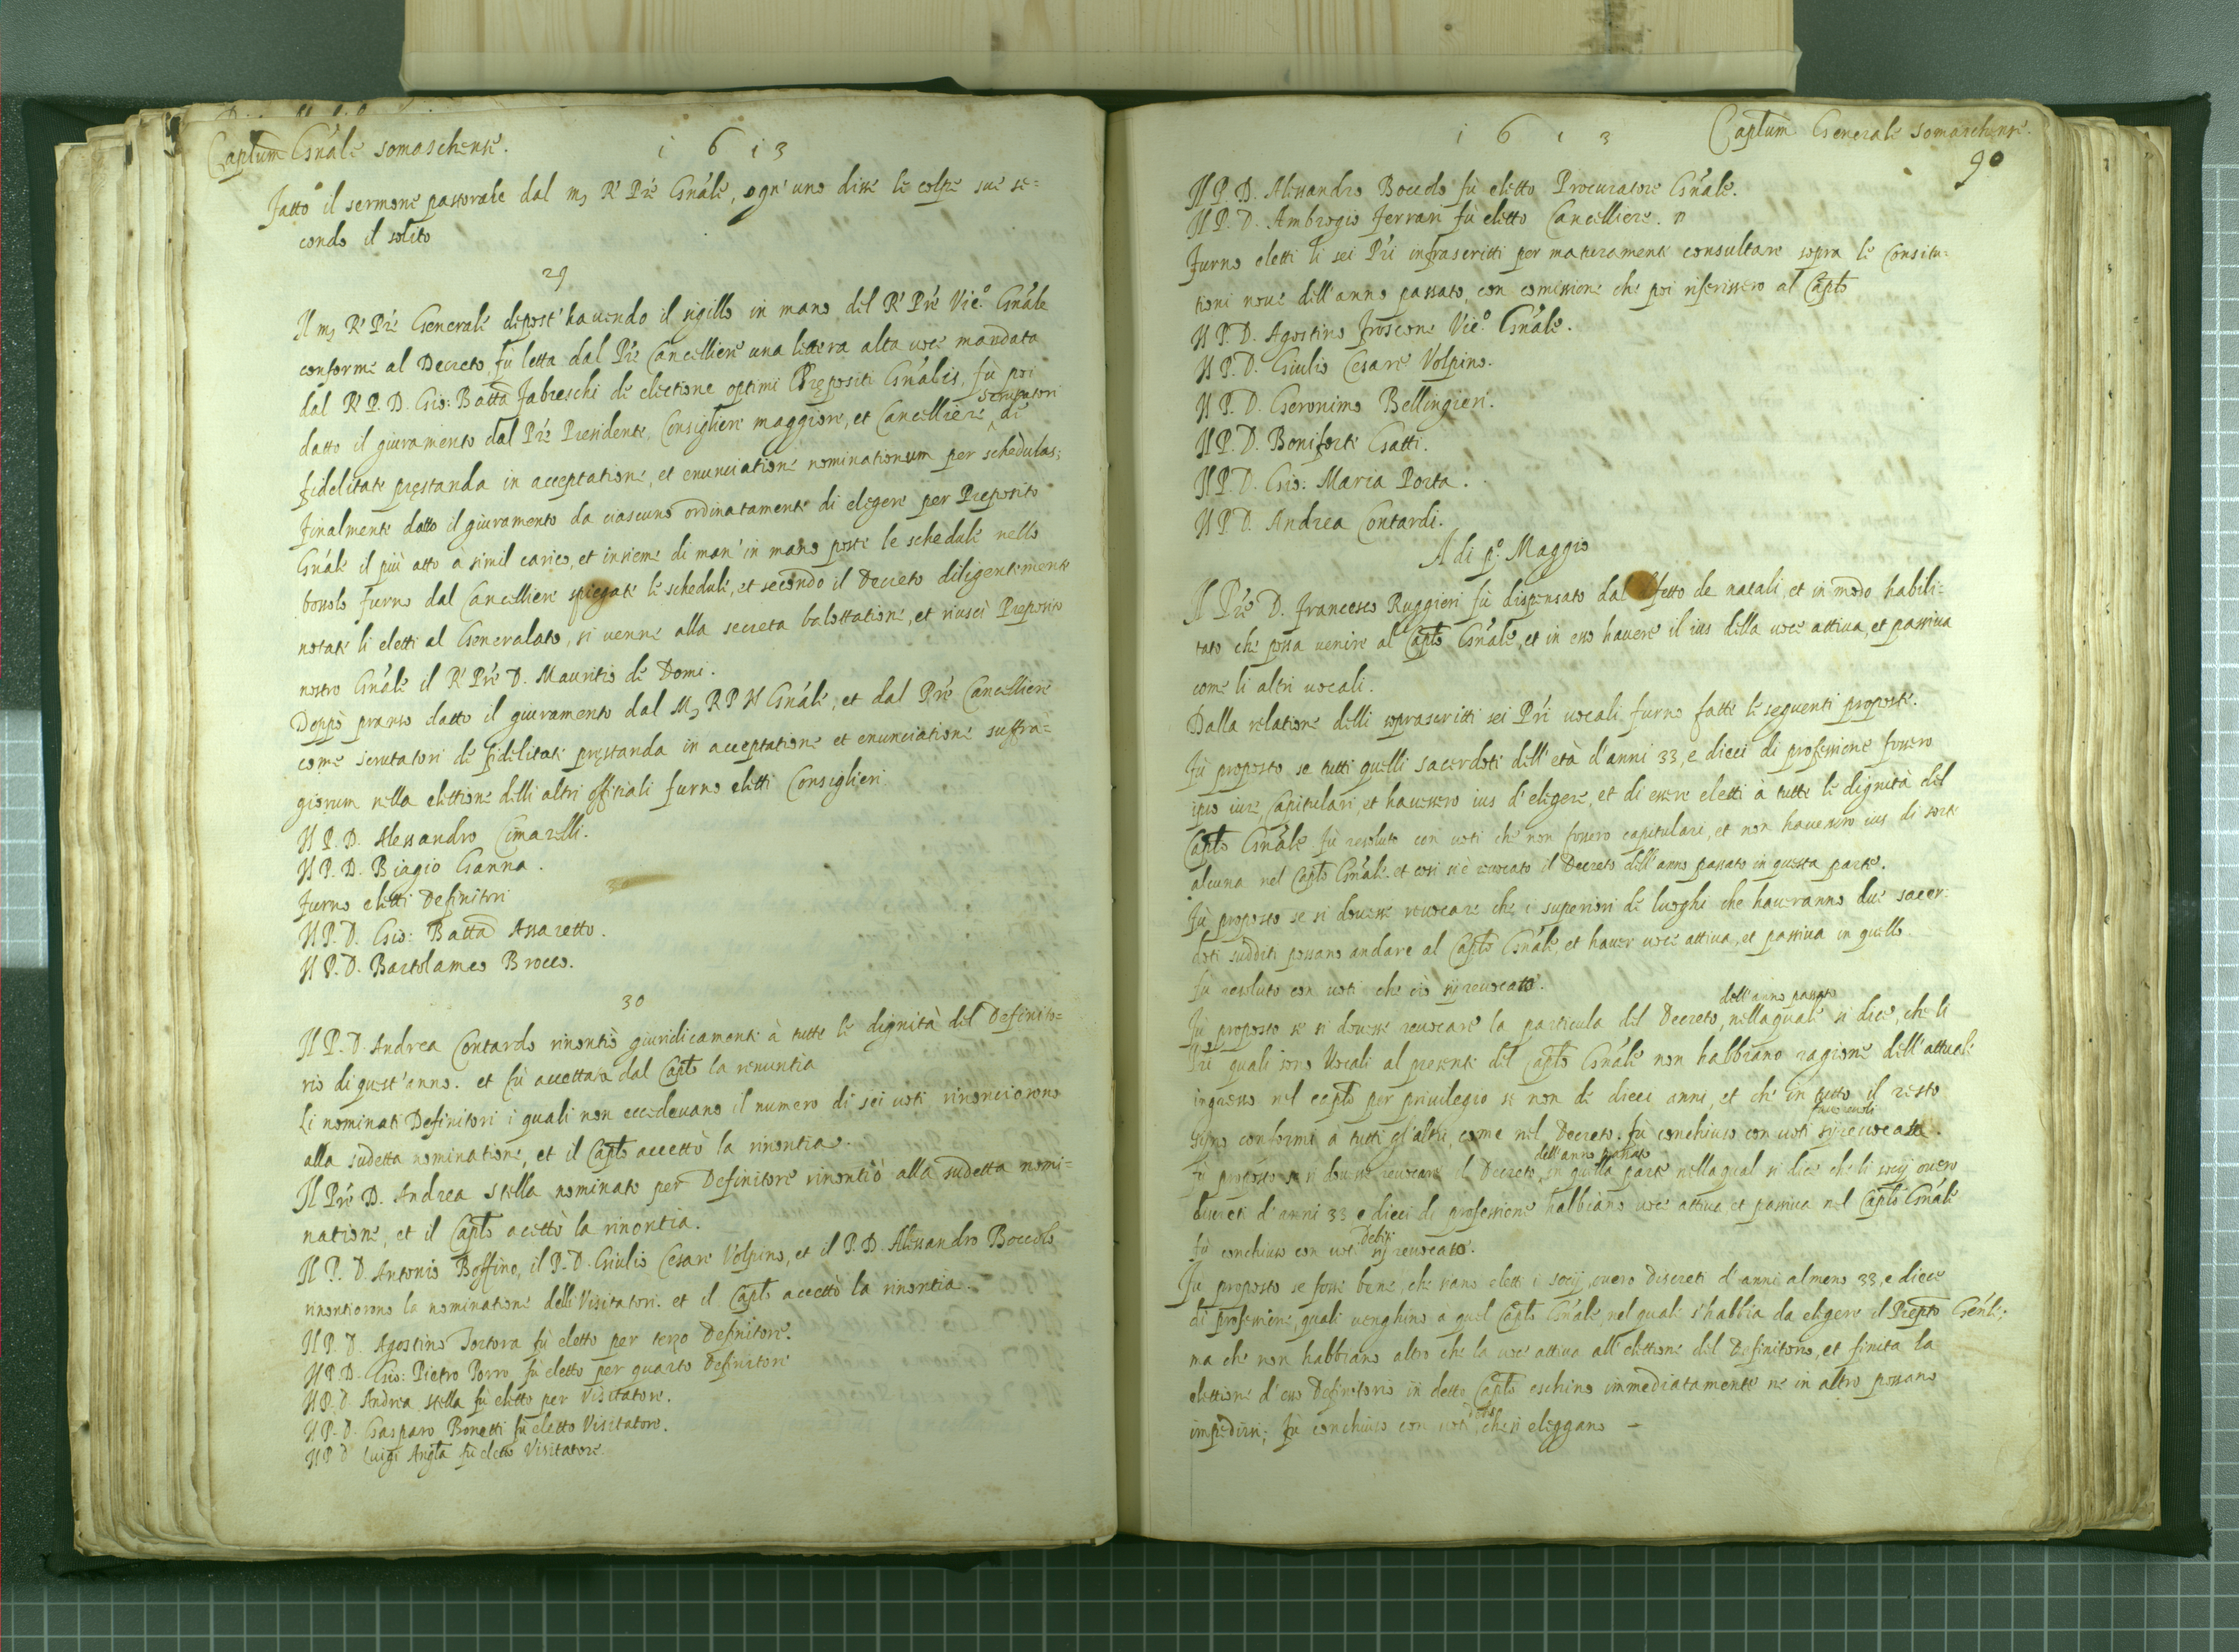 Captum Gnále somaschense.
1613
Fatto il sermone pastorale dal m. R. Prê Gnále, ogn'uno disse le colpe sue se=
condo il solito
29
Il m. R. Prê Generale depost'havendo il sigillo in mano del R. Prê Vic.º Gnále
conforme al Decreto, fu letta dal Prê Cancelliere una lettera alta voce mandata
dal R. P. D. Gio: Batta Fabreschi de electione optimi Prępositi Gnális, fù poi
datto il giuramento dal Prê Presidente, Consigliere maggiore, et Cancelliere scrutatori di
fidelitate pręstanda in acceptatione, et enunciatione nominationum per schedulas;
Finalmente datto il giuramento da ciascuno ordinatamente di elegere per Preposito
Gnále il più atto à simil carico, et insieme di man' in mano poste le schedule nello
bossolo furno dal Cancelliere spiegate le schedule, et secondo il Decreto diligentemente
notate li eletti al Generalato, si venne alla secreta balottatione, et riuscì Preposito
nostro Gnále il R. Prê D. Mauritio de Domi.
Doppò pranso datto il giuramento dal M. R P N Gnále, et dal Prê Cancelliere
come scrutatori de fidelitate pręstanda in acceptatione et enunciatione suffra=
giorum nella elettione delli altri offitiali furno eletti Consiglieri
Il P. D. Alessandro Cimarelli.
Il P. D. Biagio Ganna.
Furno eletti Definitori
Il P. D. Gio: Batta Assaretto.
Il P. D. Bartolameo Brocco.
30
Il P. D. Andrea Contardo rinontiò giuridicamente à tutte le dignità del Definito=
rio di quest'anno. et fù accettata dal Capto la renuntia
Li nominati Definitori i quali non eccedevano il numero di sei voti rinonciorono
alla sudetta nominatione, et il Capto accettò la rinontia.
Il Prê D. Andrea Stella nominato per Definitore rinontiò alla sudetta nomi=
natione, et il Capto acettò la rinontia.
Il P. D. Antonio Boffino, il P. D. Giulio Cesare Volpino, et il P. D. Alessandro Boccolo
rinontiorono la nominatione delli Visitatori. et il Capto accettò la rinontia.
Il P. D. Agostino Tortora fù eletto per terzo Definitore.
Il P. D. Gio: Pietro Porro fù eletto per quarto Definitore
Il P. D. Andrea Stella fù eletto per Visitatore.
Il P. D. Gasparo Bonetti fù eletto Visitatore.
Il P. D. Luigi Angta fù eletto Visitatore.
1613
Captum Generale somaschense.
90
Il P. D. Alessandro Boccolo fù eletto Procuratore Gnále.
Il P. D. Ambrogio Ferrari fù eletto Cancelliere.
Furno eletti li sei Pri infrascritti per maturamente consultare sopra le Constitu=
tioni nove dell'anno passato, con comissione che poi riferissero al Capto
Il P. D. Agostino Froscone Vic.º Gnále.
Il P. D. Giulio Cesare Volpino.
Il P. D. Geronimo Bellingieri.
Il P. D. Boniforte Gatti.
Il P. D. Gio: Maria Porta.
Il P. D. Andrea Contardi.
A di p.º Maggio
Il Prê D. Francesco Ruggieri fù dispensato dal difetto de natali, et in modo habili=
tato che possa venire al Capto Gnále, et in esso havere il ius della voce attiva, et passiva
come li altri vocali.
Dalla relatione delli soprascritti sei Pri vocali furno fatte le seguenti proposte.
Fù proposto se tutti quelli sacerdoti dell'età d'anni 33, e dieci di professione fossero
ipso iure, Capitulari, et havessero ius d'elegere, et di essere eletti à tutte le dignità del
Capto Gnále fù resoluto con voti che non fossero capitulari, et non havessero ius di sorte
alcuna nel Capto Gnále. et così si è revocato il Decreto dell'anno passato in questa parte.
Fù proposto se si dovesse revocare che i superiori de luoghi che haveranno due sacer=
doti sudditi possano andare al Capto Gnále, et haver voce attiva, et passiva in quello
fù resoluto con voti che ciò sij revocato.
Fù proposto se si dovesse revocare la particula del Decreto, dell'anno passato nella quale si dice, che li
Pri quali sono Vocali al presente del Capto Gnále non habbiano ragione dell'attuale
ingresso nel capto per privilegio se non de dieci anni, et che in tutto il resto
sijno conformi à tutti gl'altri, come nel Decreto. fù conchiuso con voti sij revocata.
Fù proposto se si dovesse revocare il Decreto dell'anno passato in quella parte nella qual si dice che li socij overo
discreti d'anni 33, e dieci di professione habbiano voce attiva, et passiva nel Capto Gnále
fù conchiuso con voti sij revocato.
Fù proposto se fosse bene, che siano eletti i socij, overo Discreti d'anni almeno 33, e diece
di professione, quali venghino à quel Capto Gnále, nel quale s'habbia da elegere il Prepto Genle,
ma che non habbiano altro che la voce attiva all'elettione del Definitorio, et finita la
elettione d'esso Definitorio in detto Capto eschino immediatamente ne in altro possano
impedirsi; Fù conchiuso con voti che si eleggano